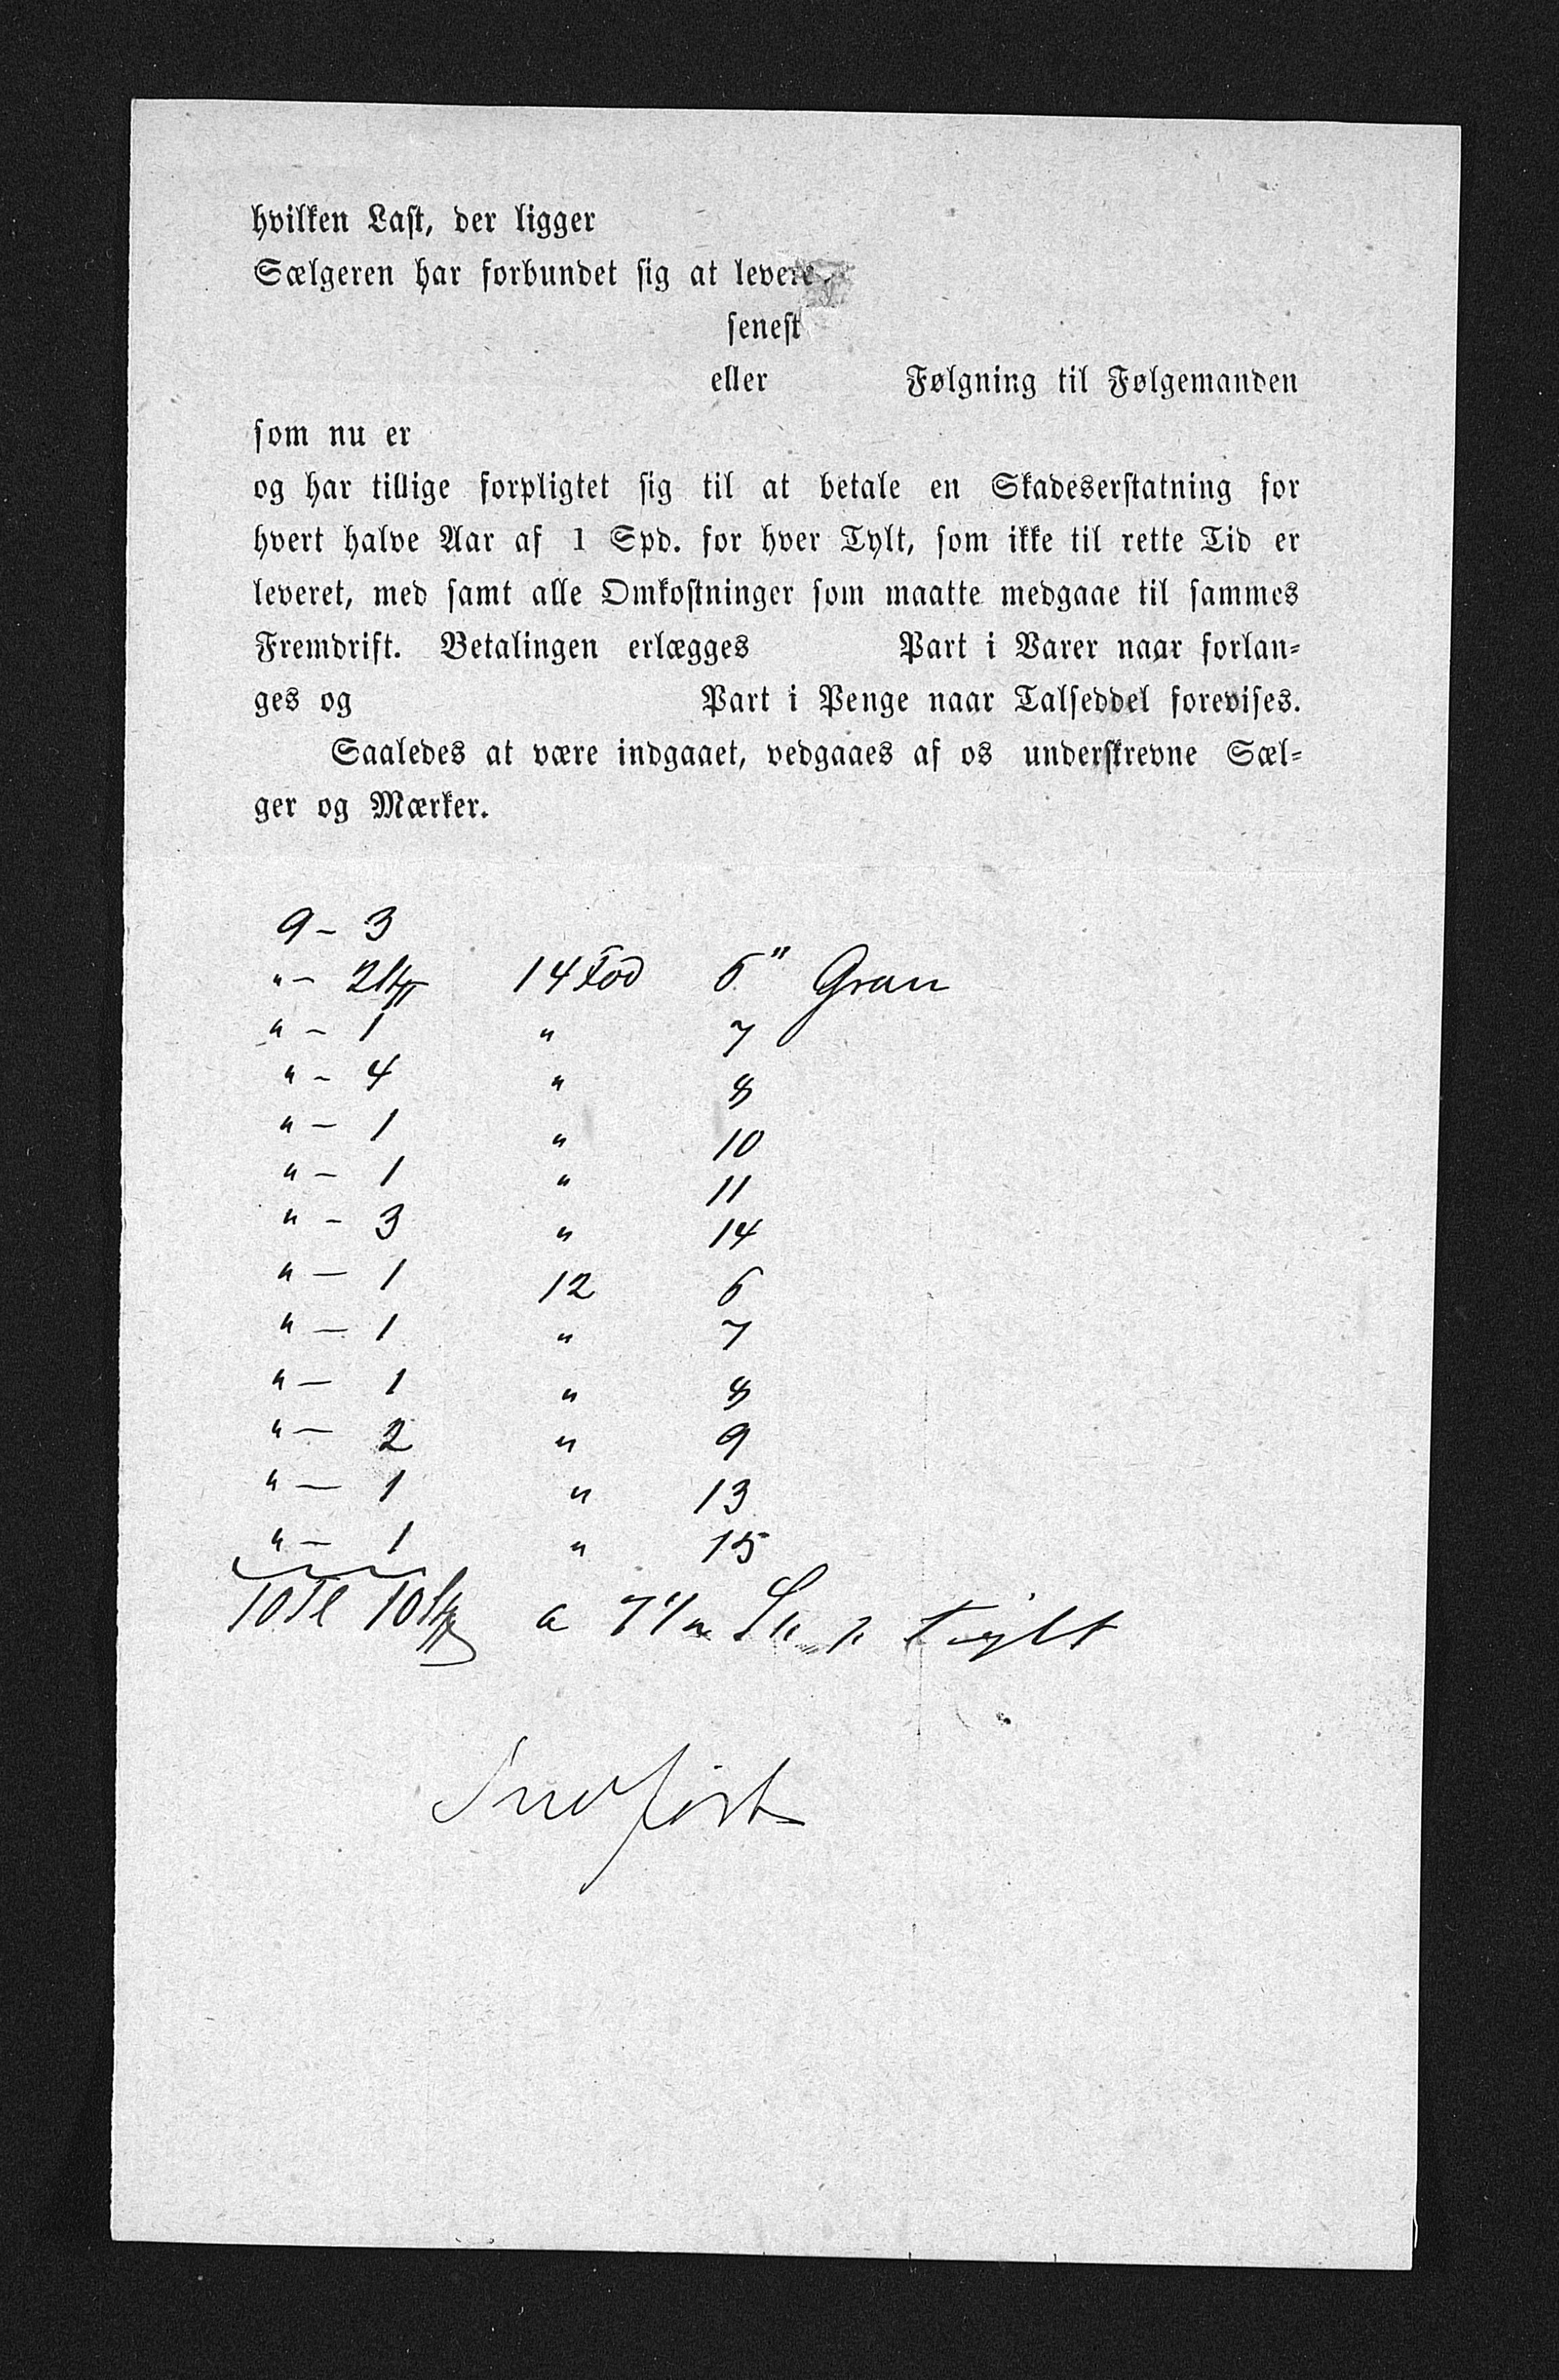 hvilken Last, der ligger
Sælgeren har forbundet sig at levere
senest
eller Følgning til Følgemanden
som nu er
og har tillige forpligtet sig til at betale en Skadeserstatning for
hvert halve Aar af 1 Spd. for hver Tylt, som ikke til rette Tid er
leveret, med samt alle Omkostninger som maatte medgaae til sammes
Fremdrift. Betalingen erlægges Part i Varer naar forlan-
ges og Part i Penge naar Talseddel forevises.
Saaledes at være indgaaet, vedgaaes af os underskrevne Sæl-
ger og Mærker.
9 - 3
" - 2 14 Fod 6" Gran
" - 1 " 7
" - 4 " 8
" - 1 " 10
" - 1 " 11
" - 3 " 14
" - 1 12 6
" - 1 " 7
" - 1 " 8
" - 2 " 9
" - 1 " 13
" - 1 " 15
10 Tl 10 a Tylt
Indført